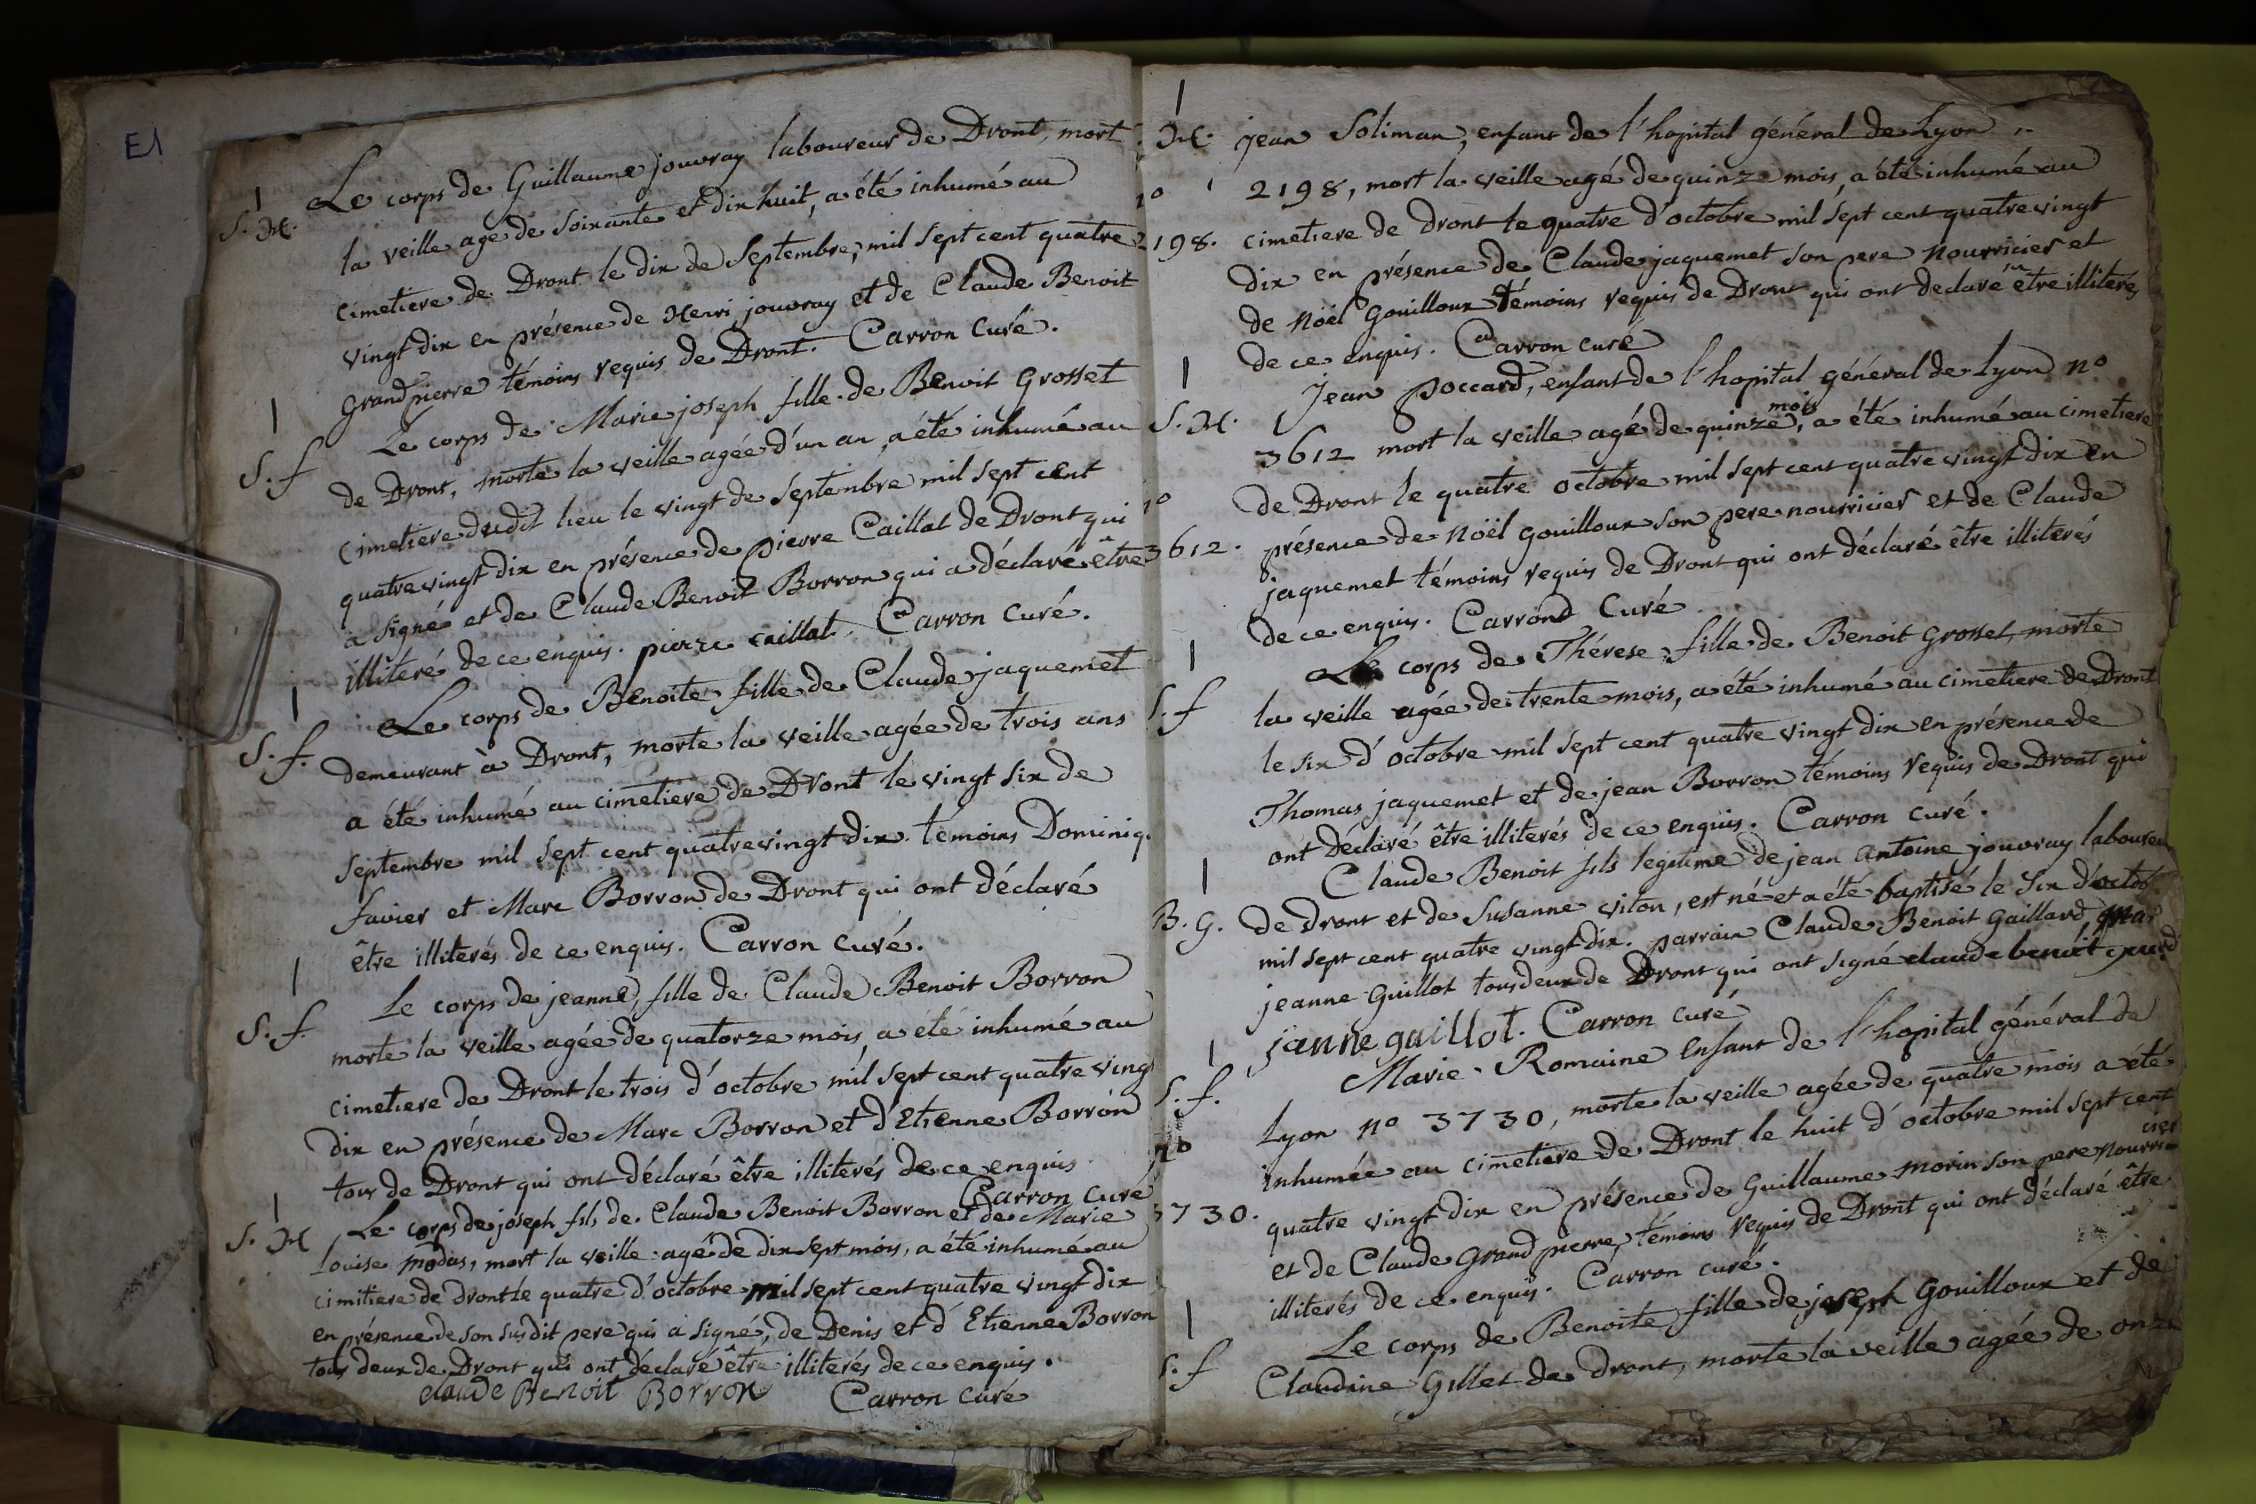 E1
S. M.
Le corps de Guillaume jouvray laboureur de Dront, mort
la veille agé de soixante et dix huit, a été inhumé au
cimetiere de Dront le dix de Septembre, mil sept cent quatre
vingt dix en présence de Henri jouvray et de Claude Benoit
grandpierre témoins requis de Dront. Carron Curé.
S. f
Le corps de Marie joseph fille de Benoit Grosset
de Dront, morte la veille agée d'un an, a été inhumé au
cimetiere dudit lieu le vingt de septembre mil sept cent
quatre vingt dix en présence de pierre Caillat de Dront qui
a signé et de Claude Benoit Borron qui a déclaré être
illiteré de ce enquis. pierre caillat. Carron Curé.
S. f.
Le corps de Benoite fille de Claude jaquemet
demeurant à Dront, morte la veille agée de trois ans
a été inhumé au cimetiere de Dront le vingt six de
septembre mil sept cent quatre vingt dix. témoins Dominiq.
favier et Marc Borron de Dront qui ont déclaré
être illiterés de ce enquis. Carron Curé.
S. f.
Le corps de jeanne, fille de Claude Benoit Borron
morte la veille agée de quatorze mois, a été inhumé au
cimetiere de Dront le trois d'octobre mil sept cent quatre ving
dix en présence de Marc Borron et d'Etienne Borron
tous de Dront qui ont déclaré être illiterés de ce enquis
Carron Curé
S. M
Le corps de joseph fils de Claude Benoit Borron et de Marie
Louise modas, mort la veille agé de dix sept mois, a été inhumé au
cimitiere de dront le quatre d'octobre mil sept cent quatre vingt dix
en présence de son susdit pere qui a signé, de Denis et d'Etienne Borron
tous deux de Dront qui ont déclaré être illiterés de ce enquis.
claude Benoit Borron Carron Curé
M.
no
2198.
jean Soliman, enfant de l'hopital général de Lyon n
2198, mort la veille agé de quinze mois, a été inhumé au
cimetiere de dront le quatre d'octobre mil sept cent quatre vingt
dix en présence de Claude jaquemet son pere nourricier et
de Nöel Gouilloux témoins requis de Dront qui ont declaré être illiterés
de ce enquis. Carron curé
S. M.
no
3612.
Jean poccard, enfant de l'hopital général de Lyon no
3612 mort la veille agé de quinze mois, a été inhumé au cimetiere
de Dront le quatre octobre mil sept cent quatre vingt dix en
présence de Nöel Gouilloux son pere nourricier et de Claude
jaquemet témoins requis de Dront qui ont déclaré être illiterés
de ce enquis. Carrond Curé
S. f
Le corps de Thérese fille de Benoit Grosset, morte
la veille agée de trente mois, a été inhumé au cimetiere de Dront
le six d'octobre mil sept cent quatre vingt dix en présence de
Thomas jaquemet et de jean Borron témoins requis de Dront qui
ont déclaré être illiterés de ce enquis. Carron curé.
B. G.
Claude Benoit fils legitime de jean antoine jouvray laboureu
de dront et de Susanne viton, est né et a été baptisé le six d'octob
mil sept cent quatre vingt dix. parrain Claude Benoit Gaillard, ma
jeanne Guillot tous deux de Dront qui ont signé claude benoit
janne guillot. Carron curé
S. f.
no
3730.
Marie Romaine enfant de l'hopital général de
Lyon no 3730, morte la veille agée de quatre mois a été
inhumée au cimetiere de Dront le huit d'octobre mil sept cent
quatre vingt dix en présence de Guillaume morin son pere nourricier
et de Claude Grand pierre, témoins requis de Dront qui ont déclaré être
illiterés de ce enquis. Carron curé.
S. f
Le corps de Benoite fille de joseph Gouilloux et de
Claudine Gillet de dront, morte la veille agée de onze